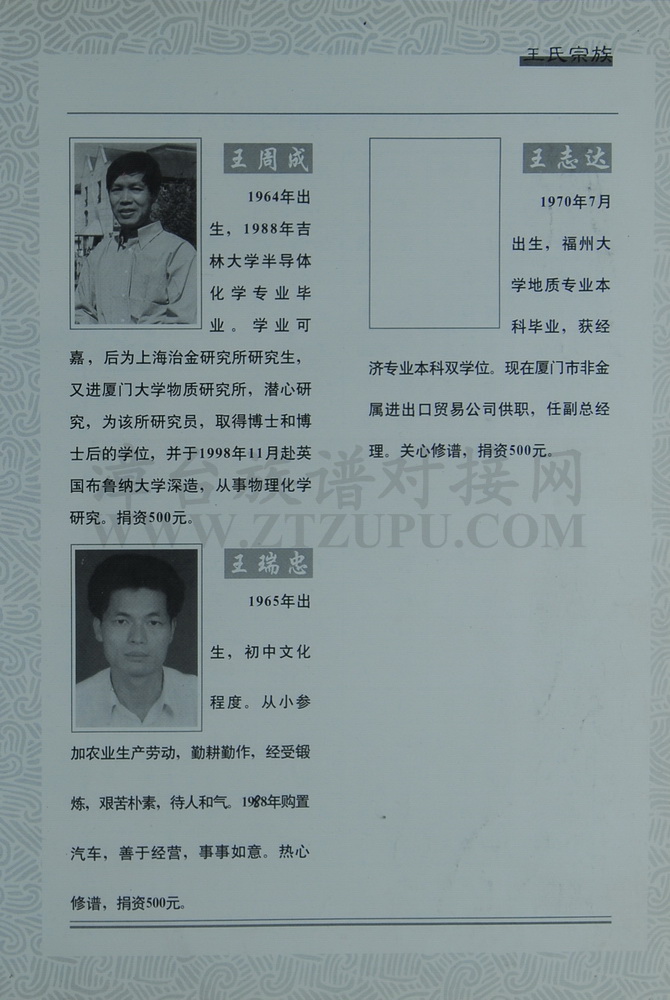 王氏宗族
王周成
1964年出
生，1988年吉
林大学半导体
化学专业毕
业。学业可
嘉，后为上海治金研究所研究生，
又进厦门大学物质研究所，潜心研
究，为该所研究员，取得博士和博
士后的学位，并于1998年11月赴英
国布鲁纳大学深造，从事物理化学
研究。捐资500元。
王瑞忠
1965年出
生，初中文化
程度。从小参
加农业生产劳动，勤耕勤作，经受锻
炼，艰苦朴素，待人和气。1988年购置
汽车，善于经营，事事如意。热心
修谱，捐资500元。
王志达
1970年7月
出生，福州大
学地质专业本
科毕业，获经
济专业本科双学位。现在厦门市非金
属进出口贸易公司供职，任副总经
理。关心修谱，捐资500元。
漳台族谱对接网
WWW.ZTZUPU.COM